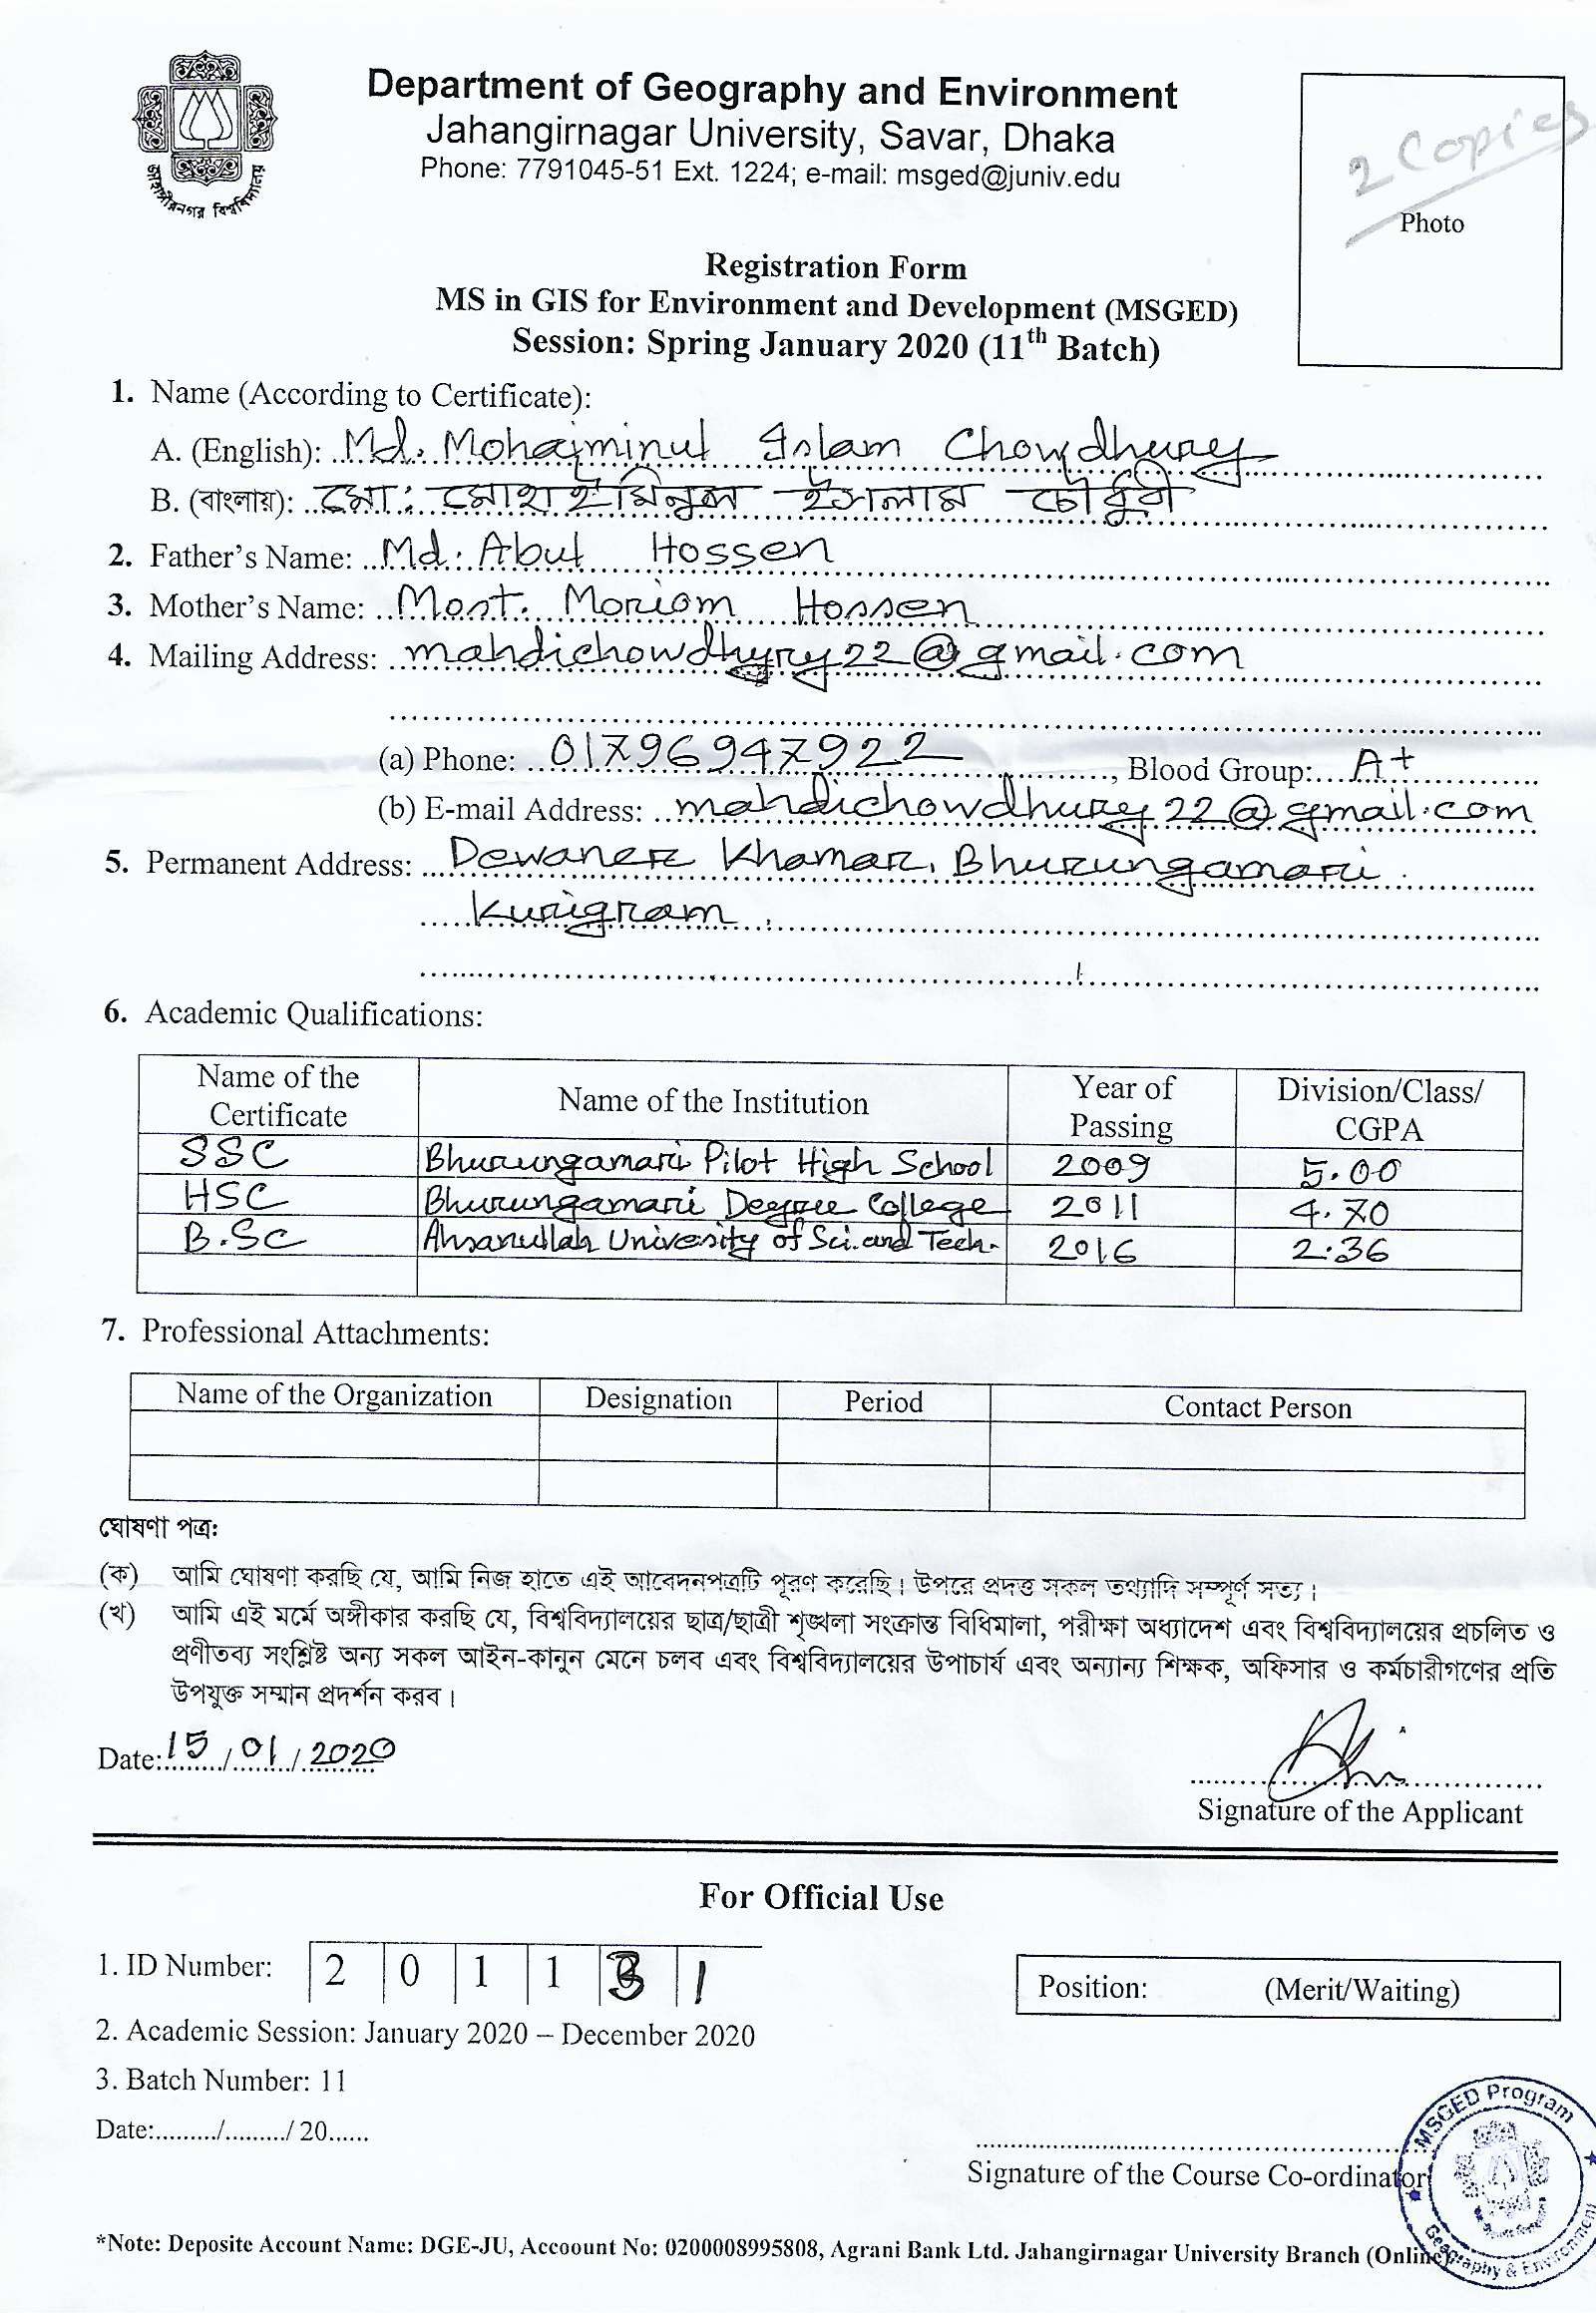 জাহাঙ্গীরনগর বিশ্ববিদ্যালয়
Department of Geography and Environment
Jahangirnagar University, Savar, Dhaka
Phone: 7791045-51 Ext. 1224; e-mail: msged@juniv.edu
2 Copies
Photo
Registration Form
MS in GIS for Environment and Development (MSGED)
Session: Spring January 2020 (11th Batch)
1. Name (According to Certificate):
A. (English): Md. Mohaiminul Islam Chowdhury
B. (বাংলায়): মো: মোহাইমিনুল ইসলাম চৌধুরী
2. Father's Name: Md. Abul Hossen
3. Mother's Name: Most. Moriom Hossen
4. Mailing Address: mahdichowdhyry22@gmail.com
(a) Phone: 01796947922, Blood Group: A+
(b) E-mail Address: mahdichowdhury22@gmail.com
5. Permanent Address: Dewaner Khamar, Bhurungamari
Kurigram
6. Academic Qualifications:
Name of the Certificate Name of the Institution Year of Passing Division/Class/ CGPA
SSC Bhurungamari Pilot High School 2009 5.00
HSC Bhurungamari Degree College 2011 4.70
B.Sc Ahsanullah University of Sci. and Tech. 2016 2.36
7. Professional Attachments:
Name of the Organization Designation Period Contact Person
ঘোষণা পত্র:
(ক) আমি ঘোষণা করছি যে, আমি নিজ হাতে এই আবেদনপত্রটি পূরণ করেছি। উপরে প্রদত্ত সকল তথ্যাদি সম্পূর্ণ সত্য।
(খ) আমি এই মর্মে অঙ্গীকার করছি যে, বিশ্ববিদ্যালয়ের ছাত্র/ছাত্রী শৃঙ্খলা সংক্রান্ত বিধিমালা, পরীক্ষা অধ্যাদেশ এবং বিশ্ববিদ্যালয়ের প্রচলিত ও
প্রণীতব্য সংশ্লিষ্ট অন্য সকল আইন-কানুন মেনে চলব এবং বিশ্ববিদ্যালয়ের উপাচার্য এবং অন্যান্য শিক্ষক, অফিসার ও কর্মচারীগণের প্রতি
উপযুক্ত সম্মান প্রদর্শন করব।
Date: 15/01/2020
Signature of the Applicant
For Official Use
1. ID Number: 2 0 1 1 3 1
Position: (Merit/Waiting)
2. Academic Session: January 2020 – December 2020
3. Batch Number: 11
Date:........./........./ 20......
Signature of the Course Co-ordinator
MSGED Program
Geography & Environment
*Note: Deposite Account Name: DGE-JU, Accoount No: 0200008995808, Agrani Bank Ltd. Jahangirnagar University Branch (Online)